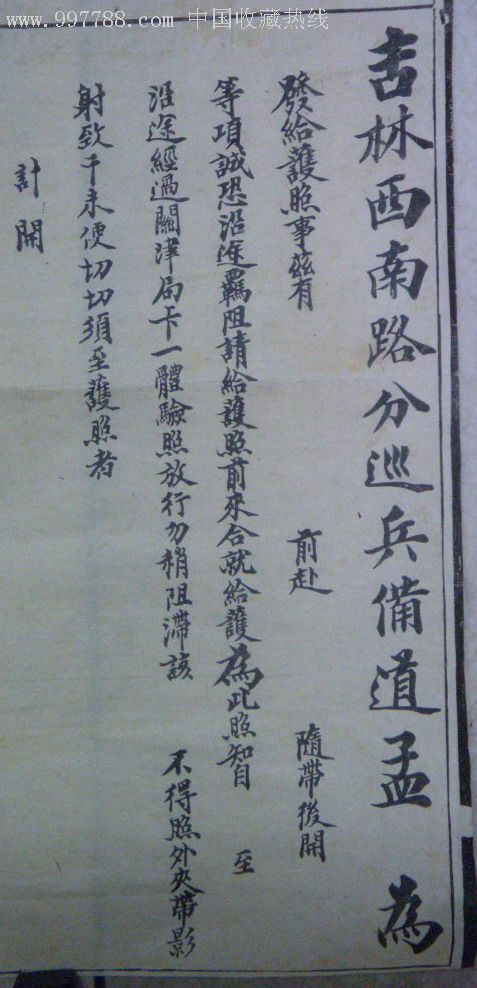 www.997788.com 中国收藏热线
吉林西南路分巡兵備道孟 為
發給護照事茲有 前赴 隨帶後開
等項誠恐沿途羈阻請給護照前來合就給護為此照知 自 至
沿途經過關津局卡一體驗照放行勿稍阻滯該 不得照外夾帶影
射致干未便切切須至護照者
計開